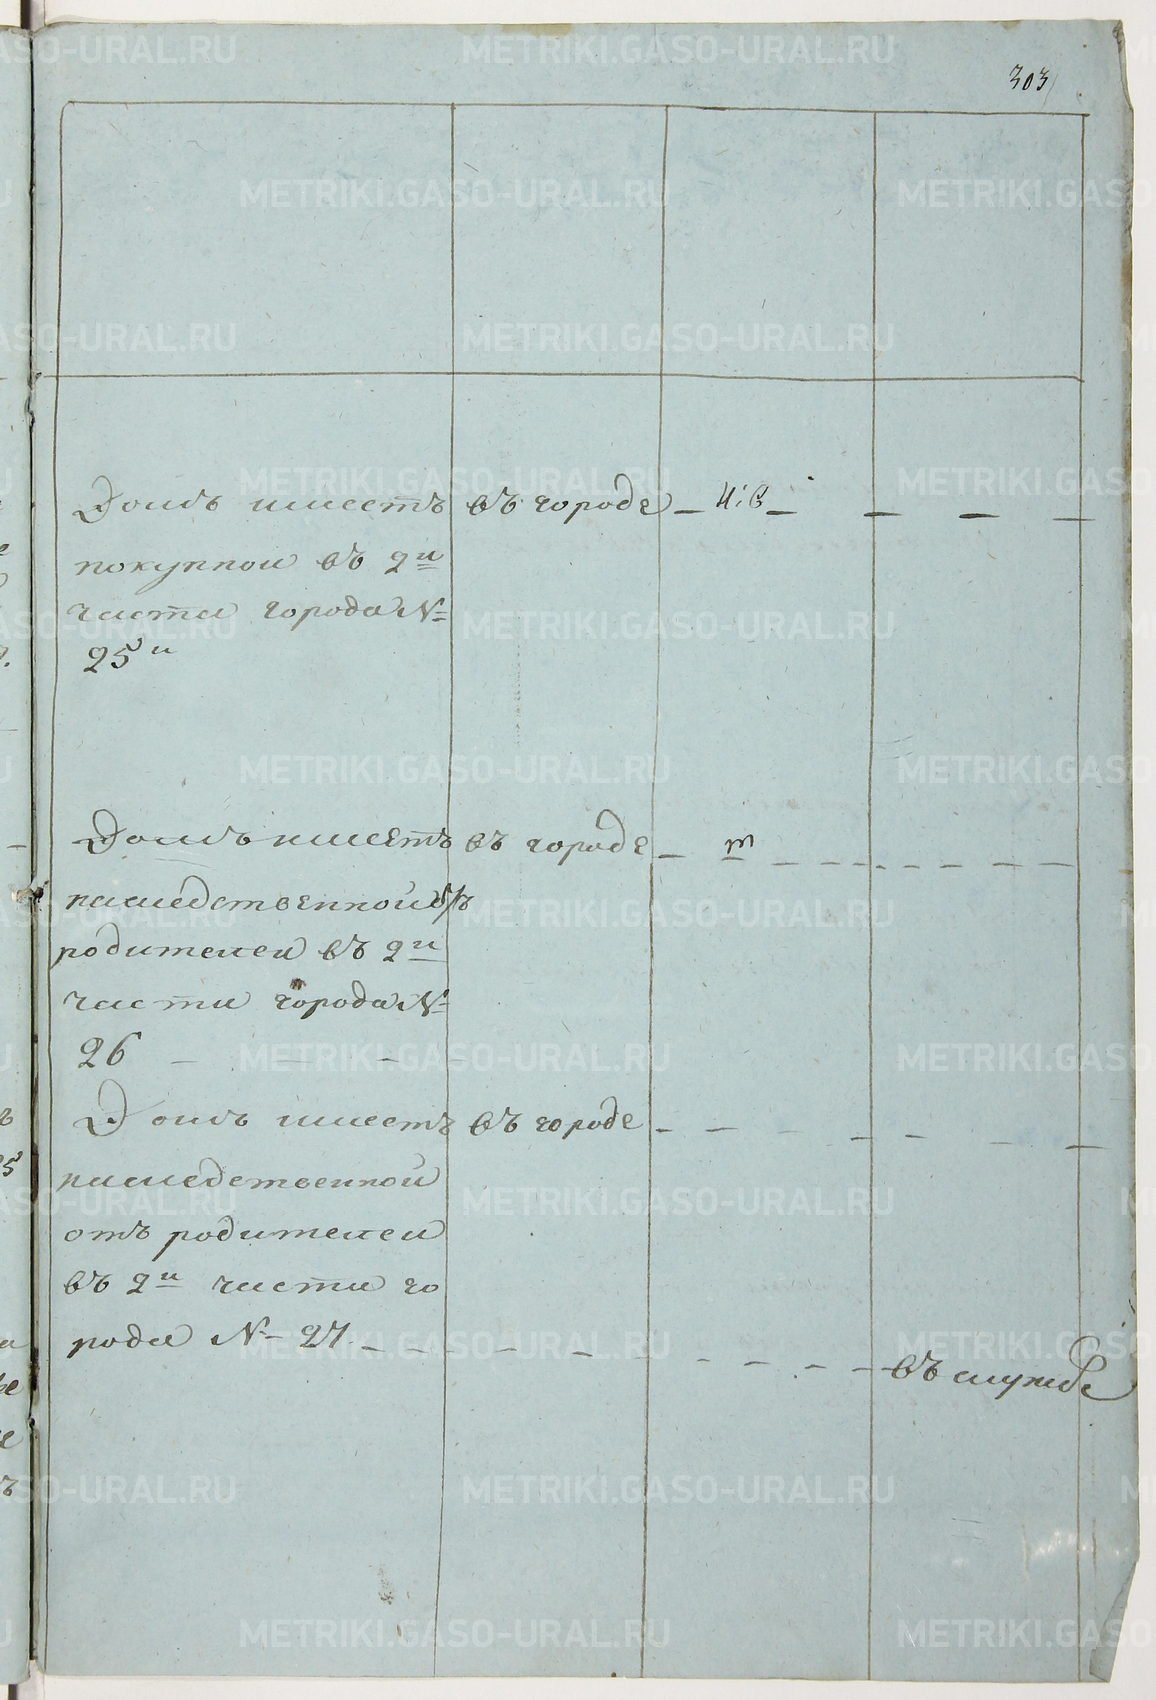 303
Домъ имеетъ въ городе
покупной въ 2й
части города №
25й
Домъ имеетъ въ городе
наследственной
родителей въ 2й
части города №
26
Домъ имеетъ въ городе
наследственной
отъ родителей
въ 2й части го
рода № 27
въ службе
METRIKI.GASO-URAL.RU